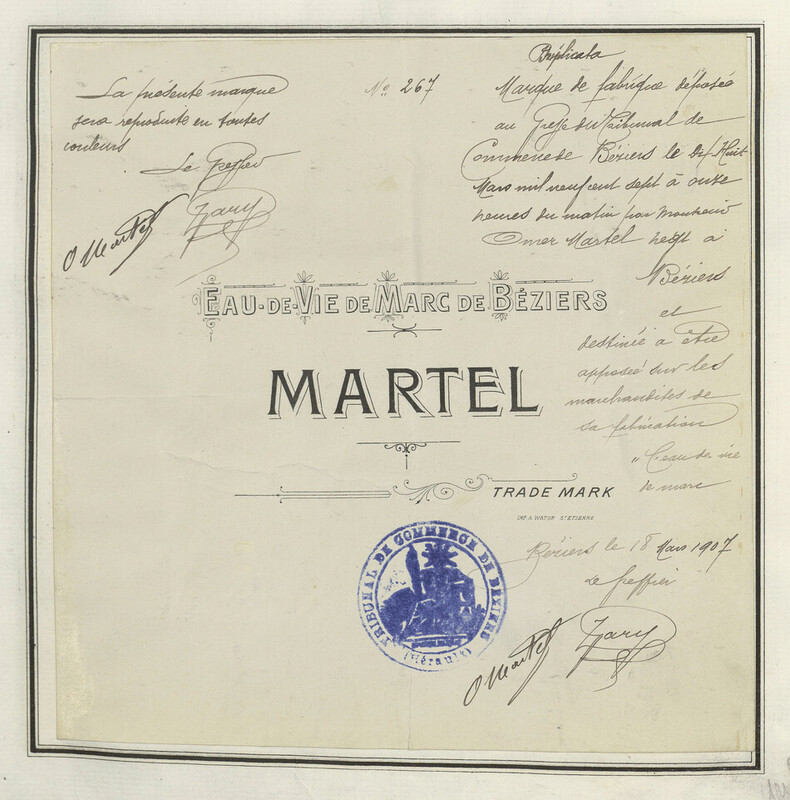 La présente marque
sera reproduite en toutes
couleurs
Le Greffier
O Martel Zary
No 267
Duplicata
Marque de fabrique déposée
au Greffe du Tribunal de
Commerce de Béziers le Dix Huit
Mars mil neuf cent sept à onze
heures du matin par Monsieur
Omer Martel negt à
Béziers
et
destinée a être
apposée sur les
marchandises de
sa fabrication
"L'eau de vie
de marc
EAU-DE-VIE DE MARC DE BÉZIERS
MARTEL
TRADE MARK
IMP. A. WATON ST ETIENNE
TRIBUNAL DE COMMERCE DE BEZIERS
(Hérault)
Béziers le 18 Mars 1907
Le Greffier
O Martel Zary